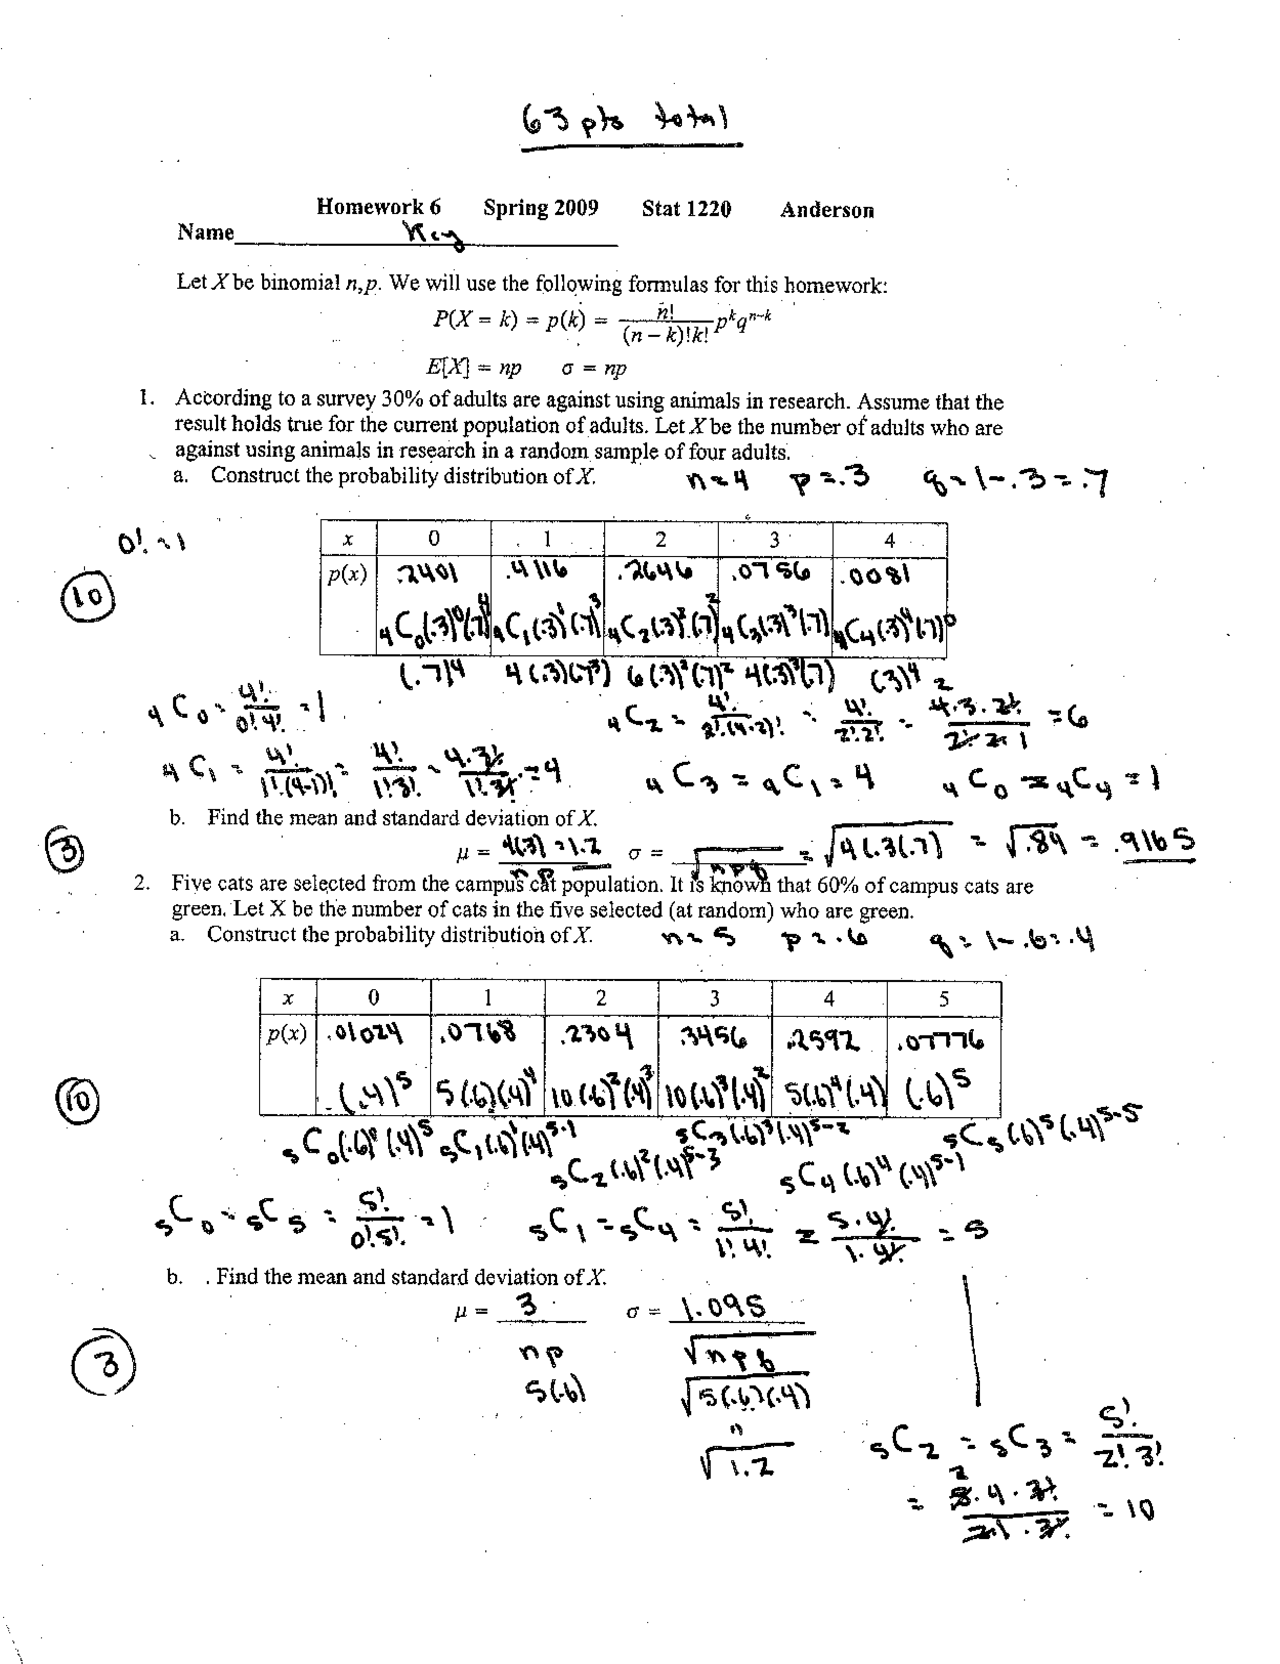 63 pts total
Homework 6 Spring 2009 Stat 1220 Anderson
Name Key
Let X be binomial n,p. We will use the following formulas for this homework:
P(X = k) = p(k) = n!/((n − k)!k!) p^k q^(n−k)
E[X] = np σ = np
1. According to a survey 30% of adults are against using animals in research. Assume that the
result holds true for the current population of adults. Let X be the number of adults who are
against using animals in research in a random sample of four adults.
a. Construct the probability distribution of X. n=4 p=.3 q=1-.3=.7
0!=1
x 0 1 2 3 4
p(x) .2401 .4116 .2646 .0756 .0081
10
4C0(.3)^0(.7)^4 4C1(.3)^1(.7)^3 4C2(.3)^2(.7)^2 4C3(.3)^3(.7) 4C4(.3)^4(.7)^0
(.7)^4 4(.3)(.7^3) 6(.3)^2(.7)^2 4(.3)^3(.7) (.3)^4
4C0 = 4!/(0!4!) = 1 4C2 = 4!/(2!(4-2)!) = 4!/(2!2!) = 4·3·2!/(2!·2·1) = 6
4C1 = 4!/(1!(4-1)!) = 4!/(1!3!) = 4·3!/(1!3!) = 4 4C3 = 4C1 = 4 4C0 = 4C4 = 1
b. Find the mean and standard deviation of X.
3
μ = 4(.3) = 1.2 σ = √ = √4(.3(.7) = √.84 = .9165
n p npq
2. Five cats are selected from the campus cat population. It is known that 60% of campus cats are
green. Let X be the number of cats in the five selected (at random) who are green.
a. Construct the probability distribution of X. n=5 p=.6 q=1-.6=.4
x 0 1 2 3 4 5
p(x) .01024 .0768 .2304 .3456 .2592 .07776
10
(.4)^5 5(.6)(.4)^4 10(.6)^2(.4)^3 10(.6)^3(.4)^2 5(.6)^4(.4) (.6)^5
5C0(.6)^0(.4)^5 5C1(.6)^1(.4)^5-1 5C3(.6)^3(.4)^5-2 5C5(.6)^5(.4)^5-5
5C2(.6)^2(.4)^5-3 5C4(.6)^4(.4)^5-1
5C0 = 5C5 = 5!/(0!5!) = 1 5C1 = 5C4 = 5!/(1!4!) = 5·4!/(1·4!) = 5
b. Find the mean and standard deviation of X.
μ = 3 σ = 1.095
3
np √npq
5(.6) √5(.6)(.4)
"
√1.2
5C2 = 5C3 = 5!/(2!3!)
= 5·4·3!/(2·1·3!) = 10
2